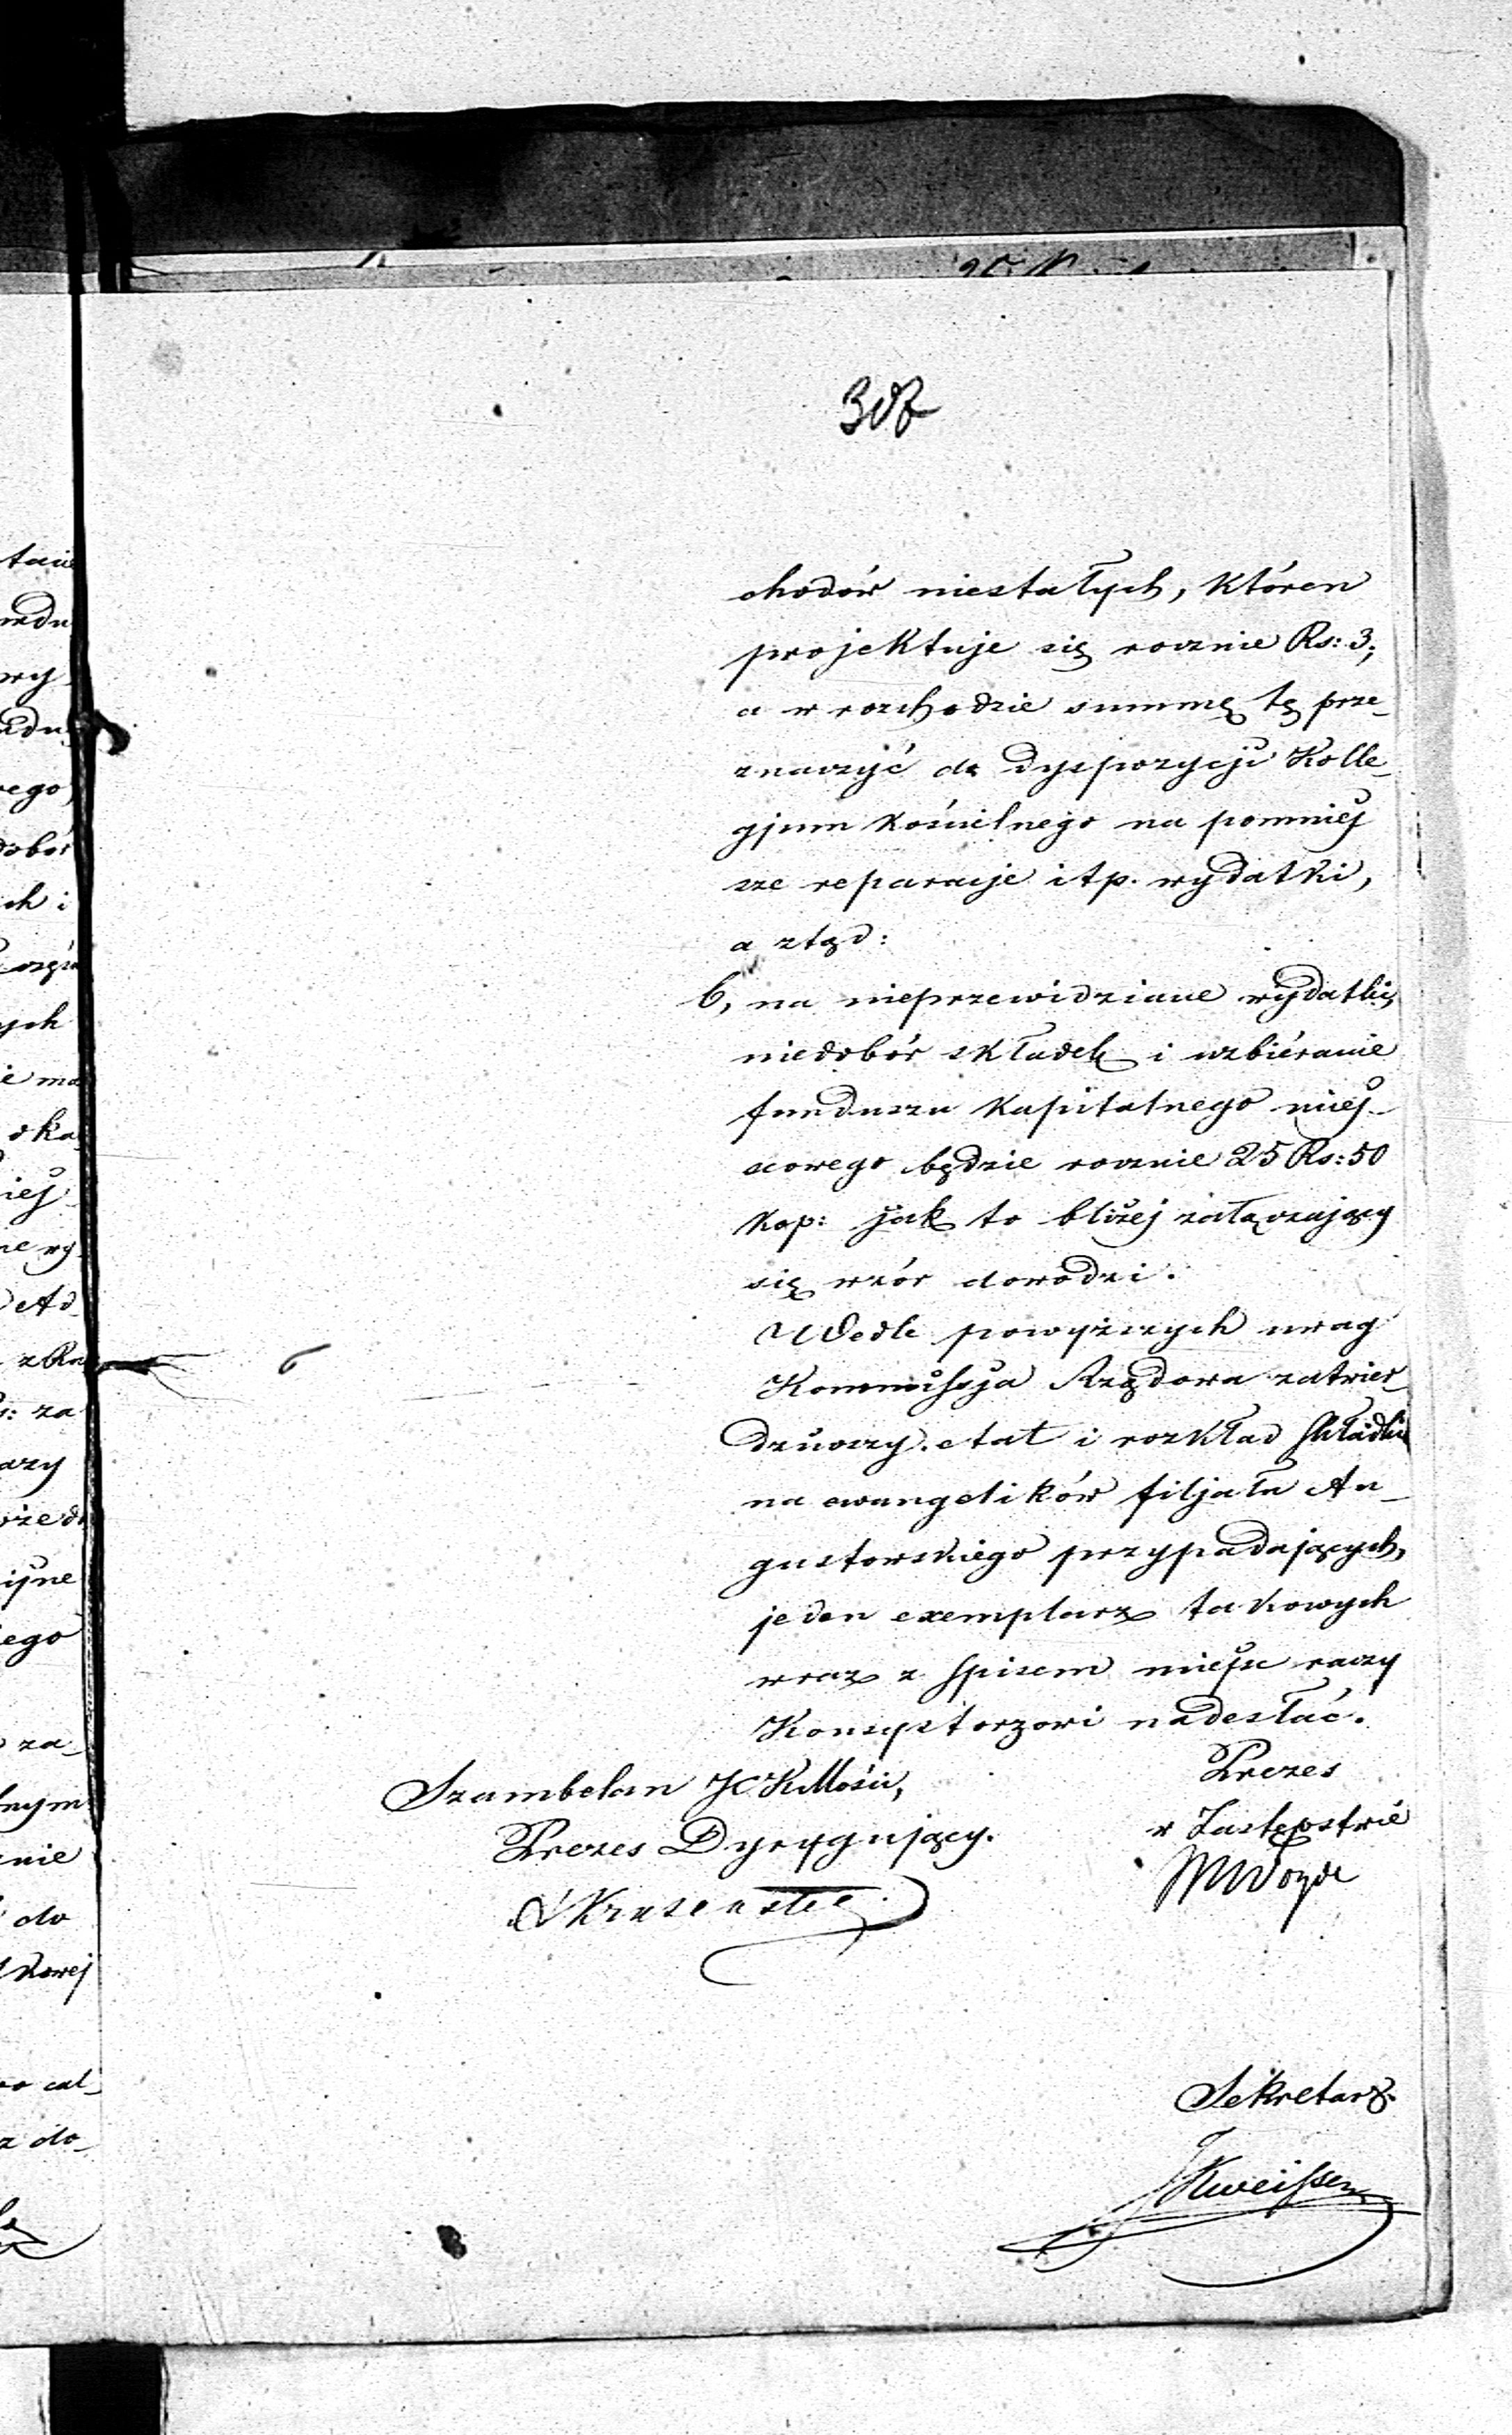 308
chodów niestałych, któren
projektuje się rocznie Rs: 3;
a w rozchodzie summę tę prze_
znaczyć do dyspozycji Kolle_
gjum kościelnego na pomniej
sze reparacje itp. wydatki,
a ztąd:
6, na nieprzewidziane wydatki,
niedobór składek i uzbiéranie
funduszu kapitalnego miej_
scowego będzie rocznie 25 Rs: 50
kop: jak to bliżej załączający
się wzór dowodzi.
Wedle powyższych uwag
Kommissja Rządowa zatwier_
dziwszy etat i rozkład składki
na ewangelików filjału Au_
gustowskiego przypadających,
jeden exemplarz takowych
wraz z spisem miejsc raczy
Konsystorzowi nadesłać.
Szambelan JCKMości,
Prezes Dyrygujący.
Prezes
w Zastępstwie
Sekretarz.